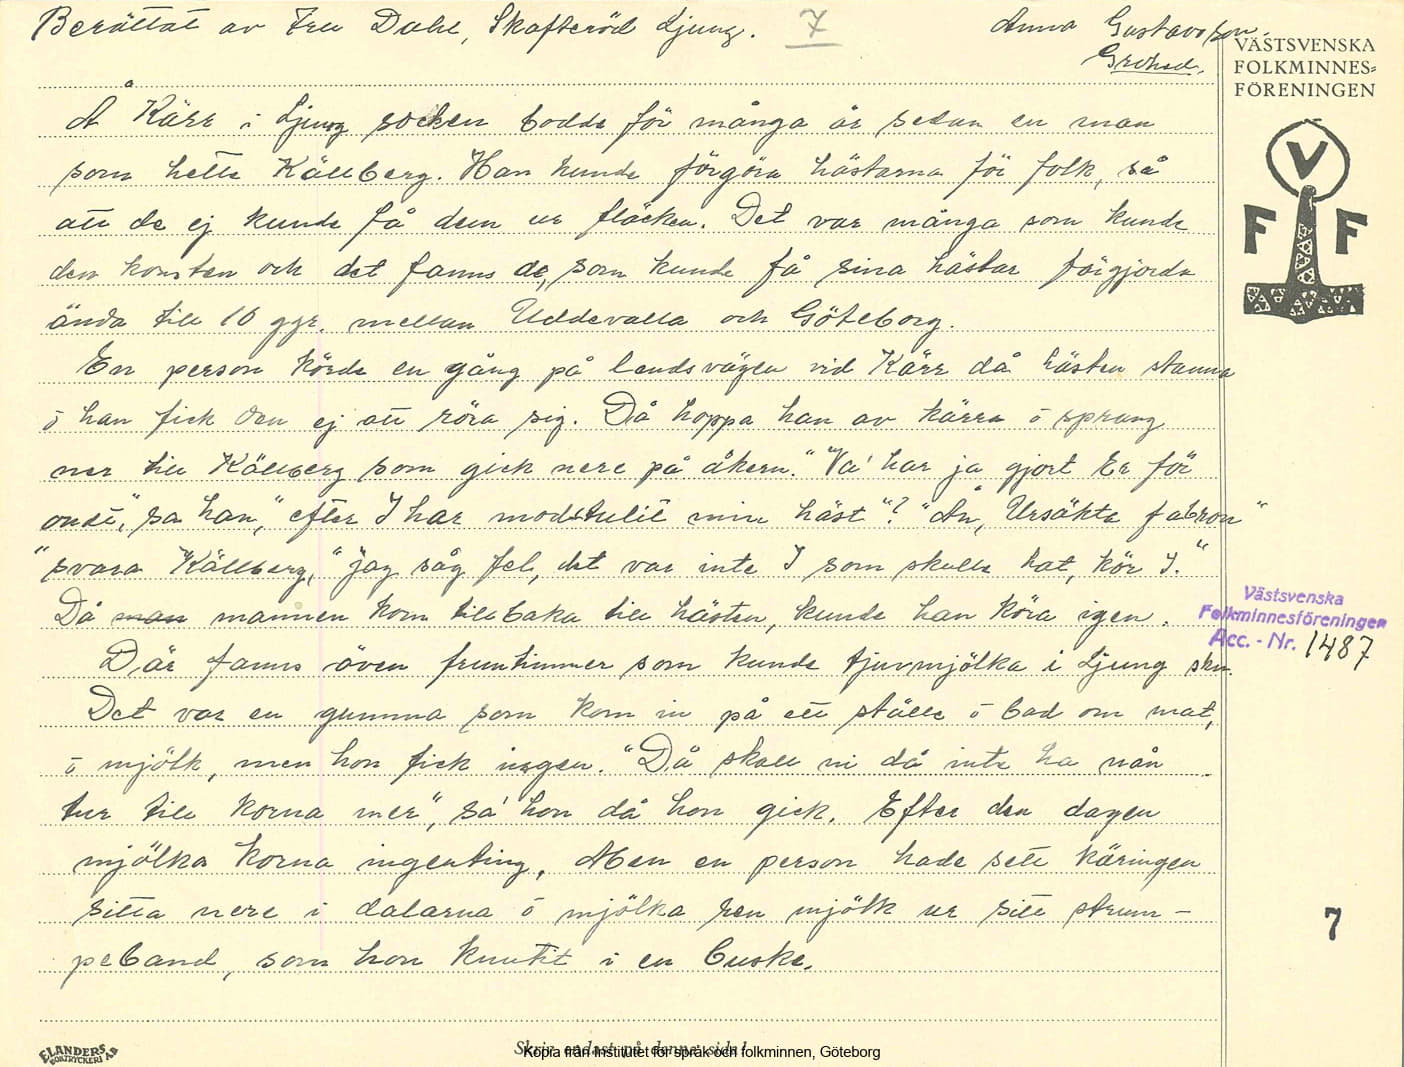 Berättat av Fru Dahl, Skafteröd Ljung.
7
Anna Gustavsson.
Grohed.
VÄSTSVENSKA
FOLKMINNES=
FÖRENINGEN
V
F F
Å Kärr i Ljung socken bodde för många år sedan en man
som hette Källberg. Han kunde förgöra hästarna för folk, så
att de ej kunde få dem ur fläcken. Det var många som kunde
den konsten och det fanns de, som kunde få sina hästar förgjorda
ända till 10 ggr. mellan Uddevalla och Göteborg.
En person körde en gång på landsvägen vid Kärr då hästen stanna
ö han fick den ej att röra sig. Då hoppa han av kärra ö sprang
ner till Källberg som gick nere på åkern. "Va' har ja gjort Er för
ondt," sa han, "efter I har modstulit min häst"? "Ån, Ursäkta fabron"
"svara Källberg, "jag såg fel, det var inte I som skulle hat, kör I."
Då man mannen kom tillbaka till hästen, kunde han köra igen.
Där fanns även fruntimmer som kunde tjuvmjölka i Ljung skn.
Det var en gumma som kom in på ett ställe ö bad om mat,
ö mjölk, men hon fick ingen. "Då skall ni då inte ha nån
tur till korna mer", sa' hon då hon gick. Efter den dagen
mjölka korna ingenting, Men en person hade sett käringen
sitta nere i dalarna ö mjölka ren mjölk ur sitt strum-
peband, som hon knutit i en buske.
Västsvenska
Folkminnesföreningen
Acc. - Nr. 1487
7
ELANDERS
BOKTRYCKERI AB
Skriv endast på denna sida!
Kopia från Institutet för språk och folkminnen, Göteborg